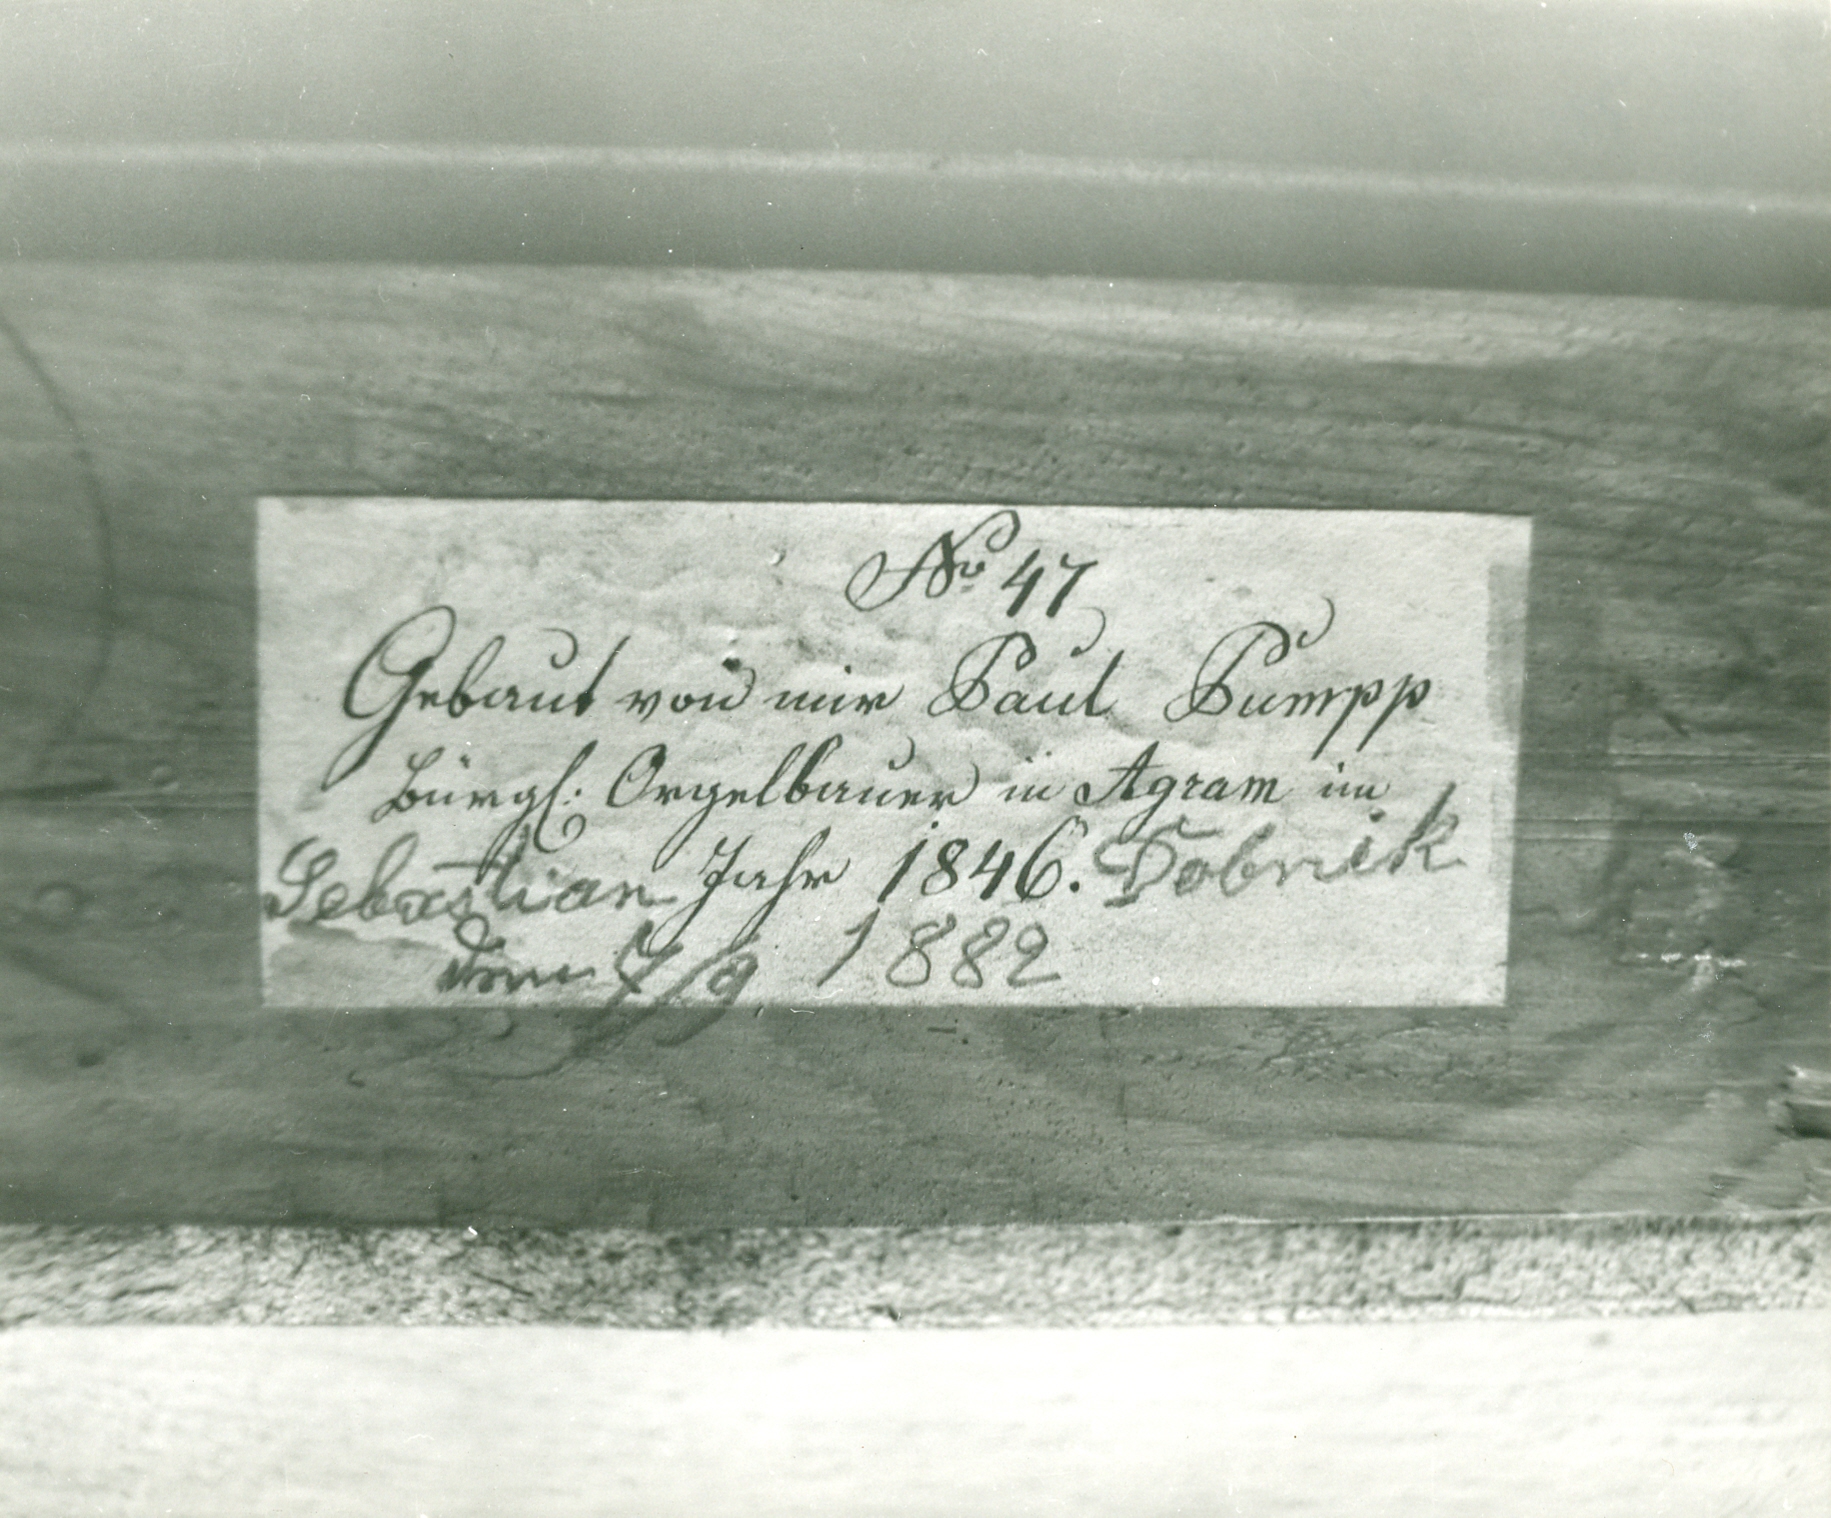 No 47
Gebaut von mir Paul Pumpp
Bürgl: Orgelbauer in Agram im
Jahr 1846.
Sebastian Dobnik
den 7/9 1882